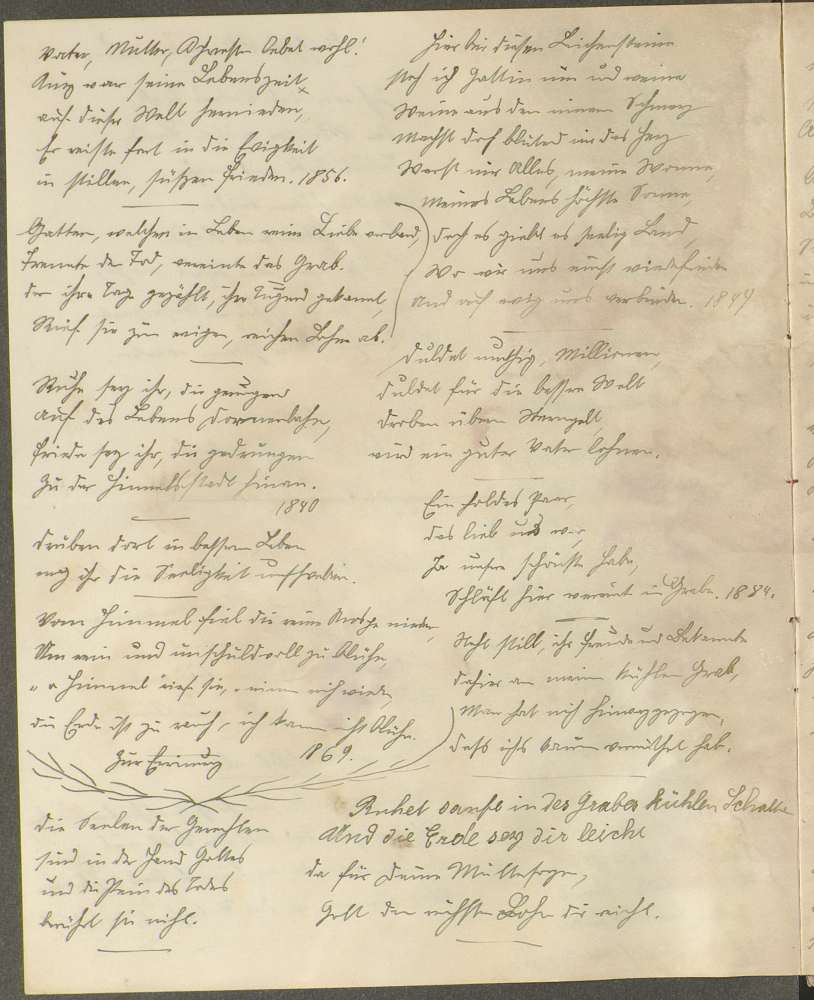 Vater, Mutter, Schwester lebet wohl!
Kurz war seine Lebenszeit
auf dieser Welt hernieden,
Er reiste fort in die Ewigkeit
in stillen, süßen Frieden. 1856.
Gatten, welchen im Leben reine Liebe verband,
Trennte der Tod, vereinte das Grab.
der ihre Tage gezählt, ihre Tugend gekannt,
Rief sie zum ewigen, reichen Lohne ab.
Ruhe sey ihr, die gerungen
auf des Lebens Dornenbahn,
Friede sey ihr, die gedrungen
Zu der Himmelsstadt hinan.
1840
Drüben dort in bessern Leben
mög ihr die Seeligkeit umschweben.
Vom Himmel fiel die reine Knospe nieder,
Um rein und unschuldvoll zu blühn,
"o Himmel" rief sie, "nimm mich wieder,
die Erde ist zu rauh, ich kann nicht blühn.
Zur Erinnrung 1869.
Die Seelen der Gerechten
sind in der Hand Gottes
und die Pein des Todes
berührt sie nicht.
Hier bei diesen Leichensteine
steh ich Gattin nun und weine
Weine aus dem innern Schmerz
Machst doch blutend mir das Herz
Warst mir Alles, meine Wonne,
Meines Lebens höchste Sonne,
doch es giebt es seelig Land,
Wo wir uns einst wiederfinden
Und auf ewig uns verbinden. 1849
Duldet muthig, Millionen,
duldet für die bessre Welt
droben überm Sternzelt,
wird ein guter Vater lohnen.
Ein holdes Paar,
das lieb uns war,
Ja unsre schönste Habe,
Schläft hier vereint im Grabe. 1884.
Steht still, ihr Freude und Bekannte
dahier an meinem kühlen Grab,
Man hat mich hinweggezogen,
daß ichs kaum vermuthet hab.
Ruhet sanft in des Grabes kühlen Schatten
Und die Erde sey dir leicht
da für deine Muttersorgen,
Gott den richsten Lohn dir reicht.